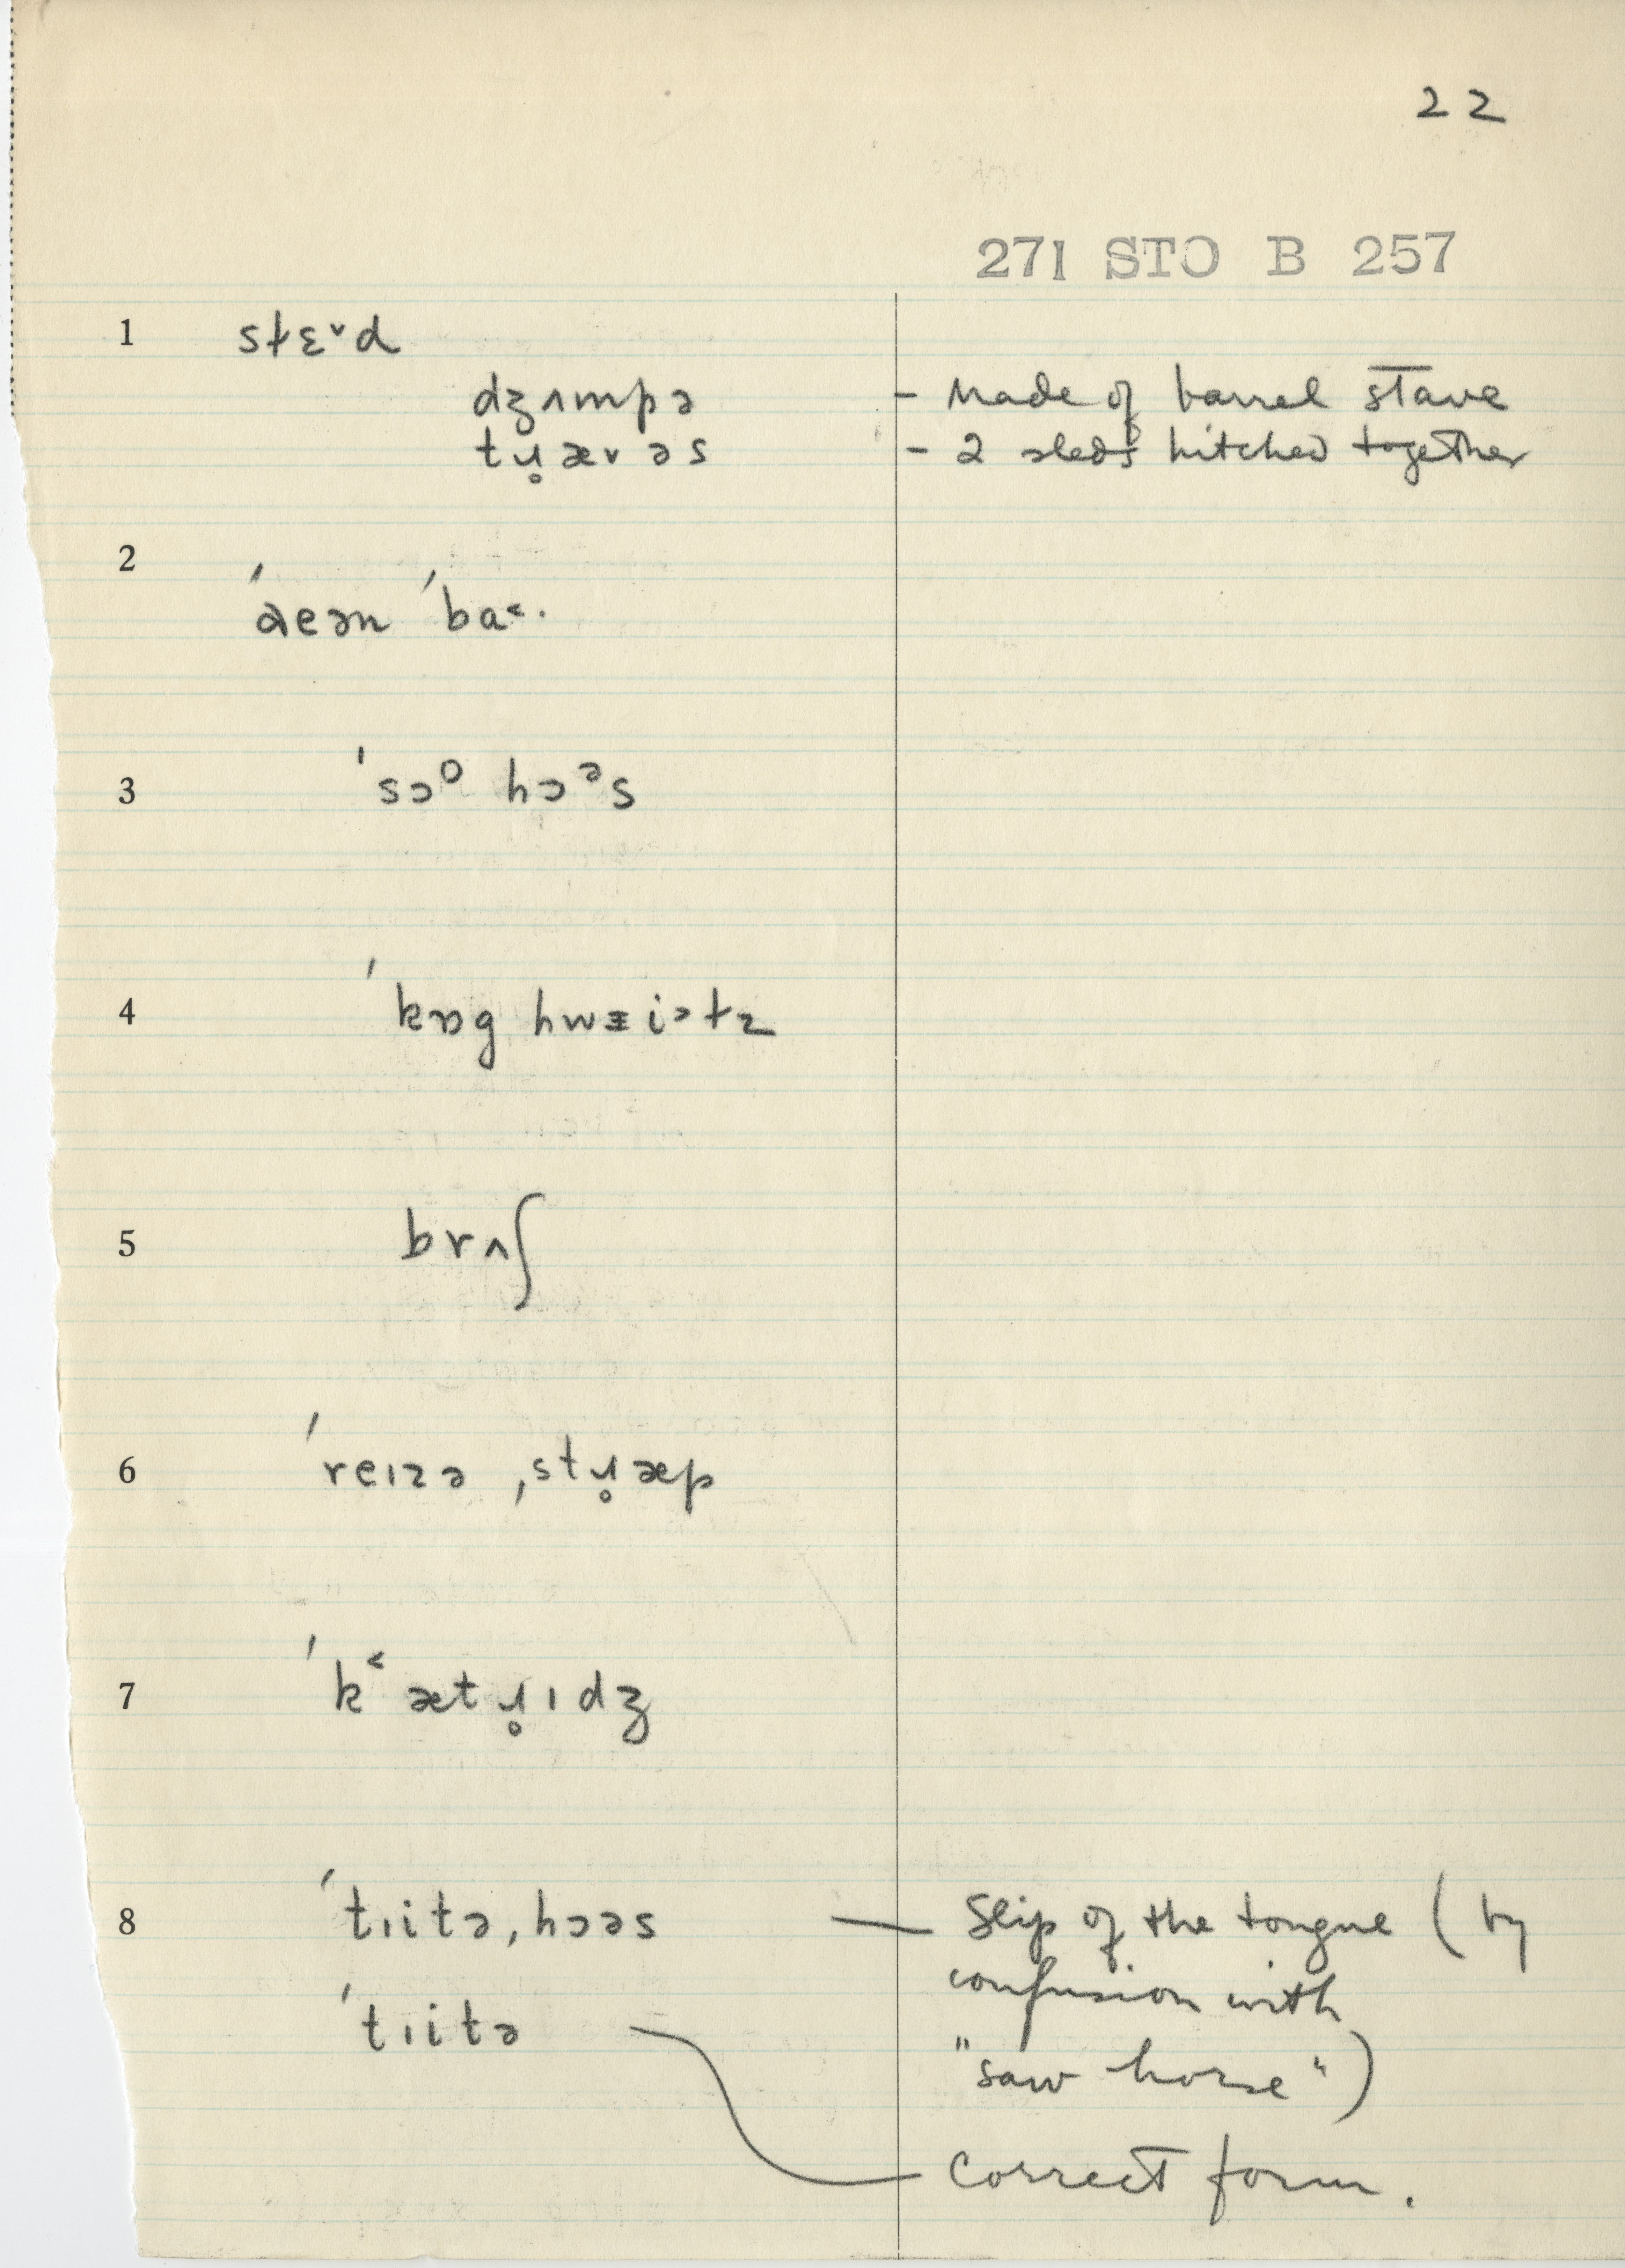 22
271 STO B 257
1 sɫɛ˅d
dʒʌmpə - Made of barrel stave
tɹ̥ævəs - 2 sleds hitched together
2 ˈaeən ˈba˂·
3 ˈsɔᴼ hɔᵊs
4 ˈkɒg hwɪi˃ɫz
5 brʌʃ
6 ˈreɪzə ˌstɹ̥æp
7 ˈk˂ætɹ̥ɪdʒ
8 ˈtɪitə,hɔəs — Slip of the tongue (by
confusion with
"saw horse")
ˈtɪitə
Correct form.